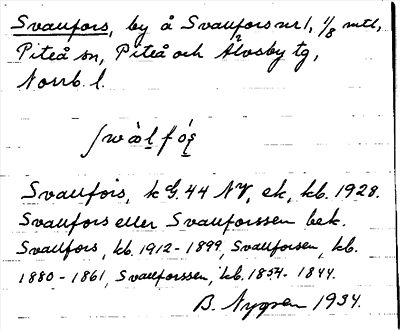 Svanfors, by å Svanfors nr 1, 1/8 mtl,
Piteå sn, Piteå och Älvsby tg,
Norrb. l.
Svanfors, k G. 44 NV, ek, kb. 1928.
Svanfors eller Svanforssen bek.
Svanfors, kb. 1912-1899, Svanforsen, kb.
1880-1861, Svanforssen, kb. 1854-1844.
B. Nygren 1934.